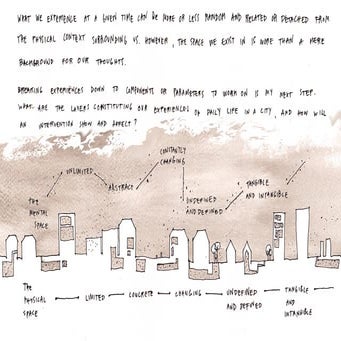 WHAT WE EXPERIENCE AT A GIVEN TIME CAN BE MORE OR LESS RANDOM AND RELATED OR DETACHED FROM
THE PHYSICAL CONTEXT SURROUNDING US. HOWEVER, THE SPACE WE EXIST IN IS MORE THAN A MERE
BACKGROUND FOR OUR THOUGHTS.
BREAKING EXPERIENCES DOWN TO COMPONENTS OR PARAMETERS TO WORK ON IS MY NEXT STEP.
WHAT ARE THE LAYERS CONSTITUTING OUR EXPERIENCES OF DAILY LIFE IN A CITY, AND HOW WILL
AN INTERVENTION SHOW AND AFFECT?
THE
MENTAL
SPACE
UNLIMITED
ABSTRACT
CONSTANTLY
CHANGING
UNDEFINED
AND DEFINED
TANGIBLE
AND INTANGIBLE
The
PHYSICAL
SPACE
LIMITED
CONCRETE
CHANGING
UNDEFINED
AND DEFINED
TANGIBLE
AND
INTANGIBLE